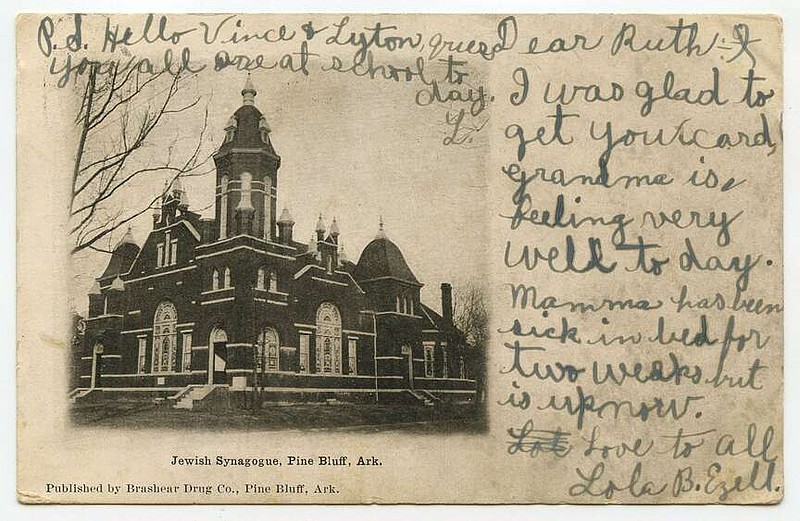 P.S. Hello Vince & Lyton, guess
you all are at school to
day.
L.
Dear Ruth:- I
I was glad to
get your card,
grandma is,
feeling very
well to day.
Mamma has been
sick in bed for
two weeks but
is up now.
Lot Love to all
Lola B. Ezell.
Jewish Synagogue, Pine Bluff, Ark.
Published by Brashear Drug Co., Pine Bluff, Ark.